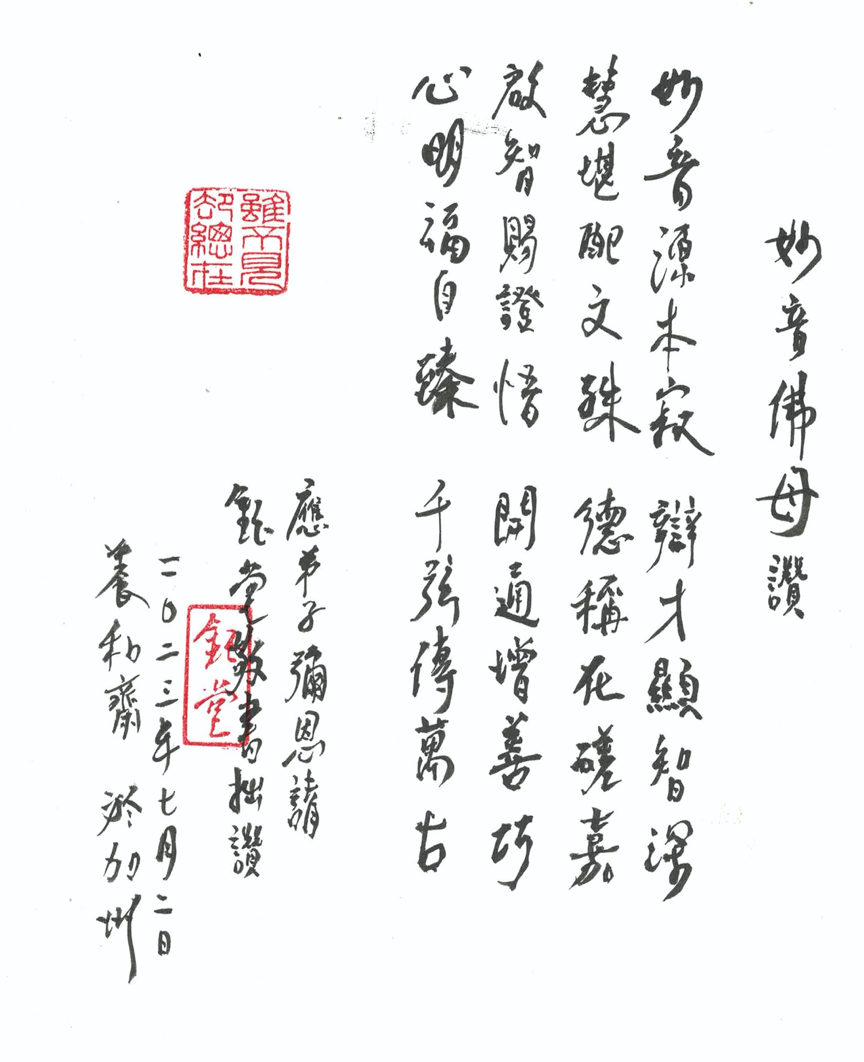 妙音佛母讚
妙音源本寂 辯才顯智深
慧堪配文殊 德稱磋嘉
啟智賜證悟 開通增善巧
心明福自臻 千弦傳萬古
應弟子彌恩請
鈺堂敬書拙讚
二〇二三年七月二日
養和齋 於加州
雖不見
卻總在
鈺堂